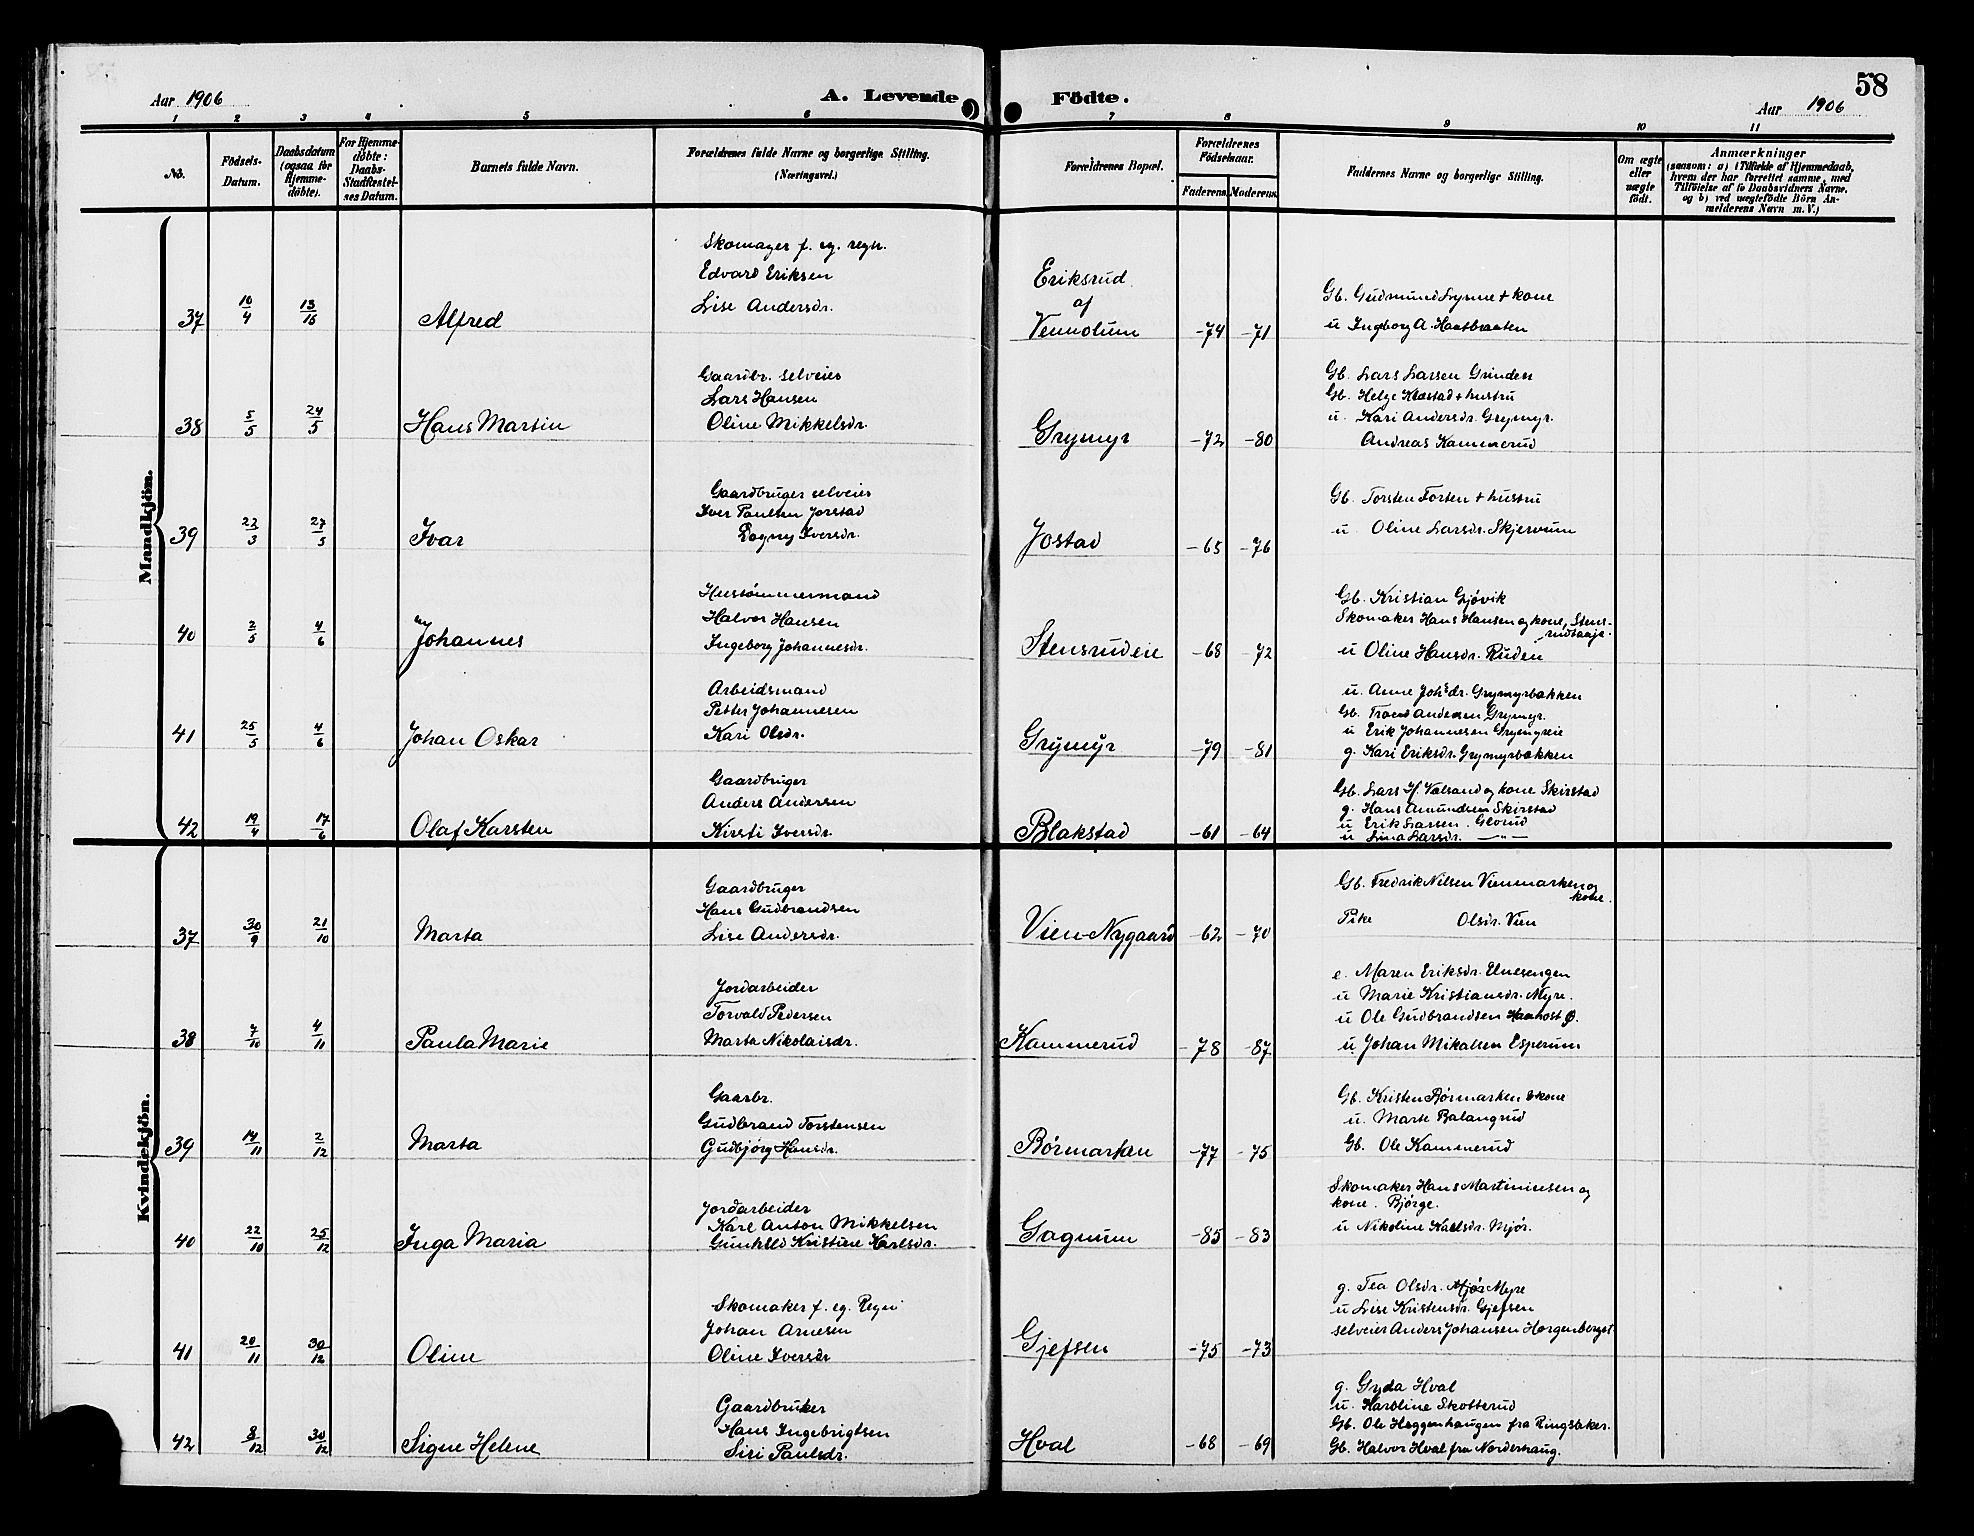 58
Aar 1906
A. Levende Födte.
Aar 1906
1 2 3 4 5 6 7 8 9 10 11
No.
Födsels-Datum.
Daabsdatum (ogsaa for Hjemmedöbte).
For Hjemmedöbte: Daabs-Stadfæstelses Datum.
Barnets fulde Navn.
Forældrenes fulde Navne og borgerlige Stilling. (Næringsvei.)
Forældrenes Bopæl.
Forældrenes Födselsaar.
Faderens. Moderens.
Faddernes Navne og borgerlige Stilling.
Om ægte eller uægte födt.
Anmærkninger
(saasom: a) i Tilfælde af Hjemmedaab, hvem der har forrettet samme, med Tilföielse af to Daabsvidners Navne, og b) ved uægtefödte Börn Anmelderens Navn m. V.)
Mandkjön.
37 10/4 13/15 Alfred
Skomager f. eg. regn.
Edvard Eriksen
Lise Andersdr.
Eriksrud
af
Vennolum -74 -71
Gb. Gudmund Lysne + kone
u Ingeborg A. Haatbraaten
38 5/5 24/5 Hans Martin
Gaardbr. selveier
Lars Hansen
Oline Mikkelsdr.
Grymyr -72 -80
Gb. Lars Larsen Grinder
Gb. Helge Klæstad + hustru
u. Kari Andersdr. Grymyr.
Andreas Kammerud
39 22/3 27/5 Ivar
Gaardbruger selveier
Iver Paulsen Jorstad
Dagny Iversdr.
Jostad -65 -76
Gb. Torsten Torsten + hustru
u Oline Larsdr. Skjervum
40 2/5 4/6 Johannes
Hustømmermand
Halvor Hansen
Ingeborg Johannesdr.
Stensrudeie -68 -72
Gb. Kristian Gjövik
Skomaker Hans Hansen og kone, Stens-
rudsaaje.
u Oline Hansdr. Ruden
41 25/5 4/6 Johan Oskar
Arbeidsmand
Petter Johannesen
Kari Olsdr.
Grymyr -79 -81
u. Anne Johsdr. Grymyrbakken
Gb. Trond Andersen Grymyr.
u Erik Johannesen Grymyreie
g. Kari Eriksdr. Grymyrbakken
42 19/4 17/6 Olaf Karsten
Gaardbruger
Anders Andersen
Kirsti Iversdr.
Blakstad -61 -64
Gb. Lars H. Valsand og kone Skirstad
g. Hans Amundsen Skirstad
u Erik Larsen. Glorud
u Lina Larsdr. —"—
Kvindekjön.
37 30/9 21/10 Marta
Gaardbruger
Hans Gudbrandsen
Lise Andersdr.
Vien Nygaard -62 -70
Gb. Fredrik Nilsen Vienmarken og
kone.
Pike Olsdr. Vien
38 7/10 4/11 Paula Marie
Jordarbeider
Torvald Pedersen
Marta Nikolaisdr.
Kammerud -78 -87
e. Maren Eriksdr. Elnesengen
u Marie Kristiansdr. Myre.
u Ole Gudbrandsen Haahost Ø.
u. Johan Mikalsen Esperum
39 14/11 2/12 Marta
Gaarbr.
Gudbrand Torstensen
Gudbjørg Hansdr.
Børmarken -77 -75
Gb. Kristen Børmarken & kone
u. Marte Balangrud
Gb. Ole Kammerud
40 22/10 25/12 Inga Maria
Jordarbeider
Karl Anton Mikkelsen
Gunhild Kristine Karlsdr.
Gagnum -85 -83
Skomaker Hans Martiniusen og
kone. Bjørge.
u Nikoline Karlsdr. Mjör.
41 20/11 30/12 Oline
Skomaker f. eg. Regn
Johan Arnesen
Oline Iversdr
Gjefsen -75 -73
g. Tea Olsdr. Mjør Myre
u Lise Kristensdr. Gjefsen
selveier Anders Johansen Horgenberget
42 8/12 30/12 Signe Helene
Gaardbruker
Hans Ingebrigtsen
Siri Paulsdr.
Hval -68 -69
g. Gyda Hval
u. Karoline Skotterud
Gb. Ole Heggenhaugen fra Ringsaker.
Gb. Halvor Hval fra Norderhaug.